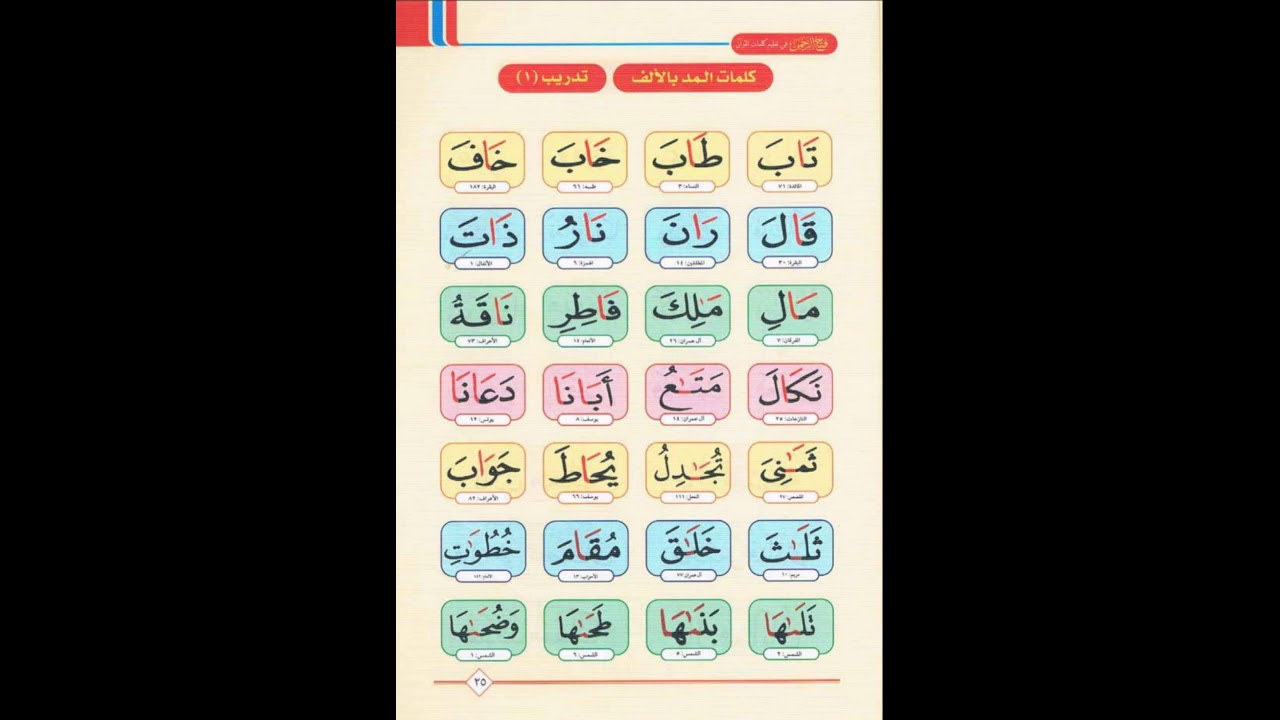 فتح الرحمن في تعليم كلمات القرآن
كلمات المد بالألف تدريب (١)
تَابَ طَابَ خَابَ خَافَ
المائدة: ٧١ النساء: ٣ طه: ٦١ البقرة: ١٨٢
قَالَ رَانَ نَارُ ذَاتَ
البقرة: ٣٠ المطففين: ١٤ الهمزة: ٦ الأنفال: ١
مَالِ مَٰلِكَ فَاطِرِ نَاقَةُ
الفرقان: ٧ آل عمران: ٢٦ الأنعام: ١٤ الأعراف: ٧٣
نَكَالَ مَتَٰعُ أَبَانَا دَعَانَا
النازعات: ٢٥ آل عمران: ١٤ يوسف: ٨ يونس: ١٢
ثَمَٰنِىَ تُجَٰدِلُ يُحَاطَ جَوَابَ
القصص: ٢٧ النحل: ١١١ يوسف: ٦٦ الأعراف: ٨٢
ثَلَٰثَ خَلَٰقَ مُقَامَ خُطُوَٰتِ
مريم: ١٠ آل عمران: ٧٧ الأحزاب: ١٣ الأنعام: ١٤٢
تَلَىٰهَا بَنَىٰهَا طَحَىٰهَا وَضُحَىٰهَا
الشمس: ٢ الشمس: ٥ الشمس: ٦ الشمس: ١
٢٥